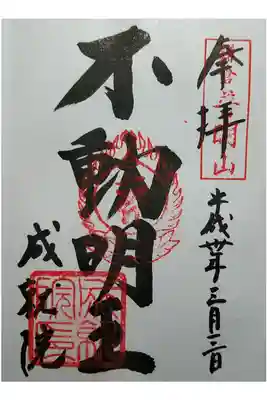 奉拝
平成卅年三月二日
不動明王
成就院